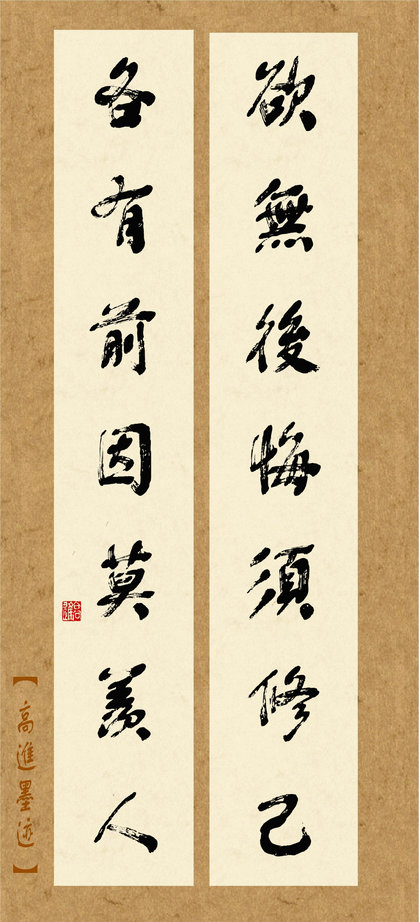 欲無後悔須修己
各有前因莫羨人
【高進墨迹】